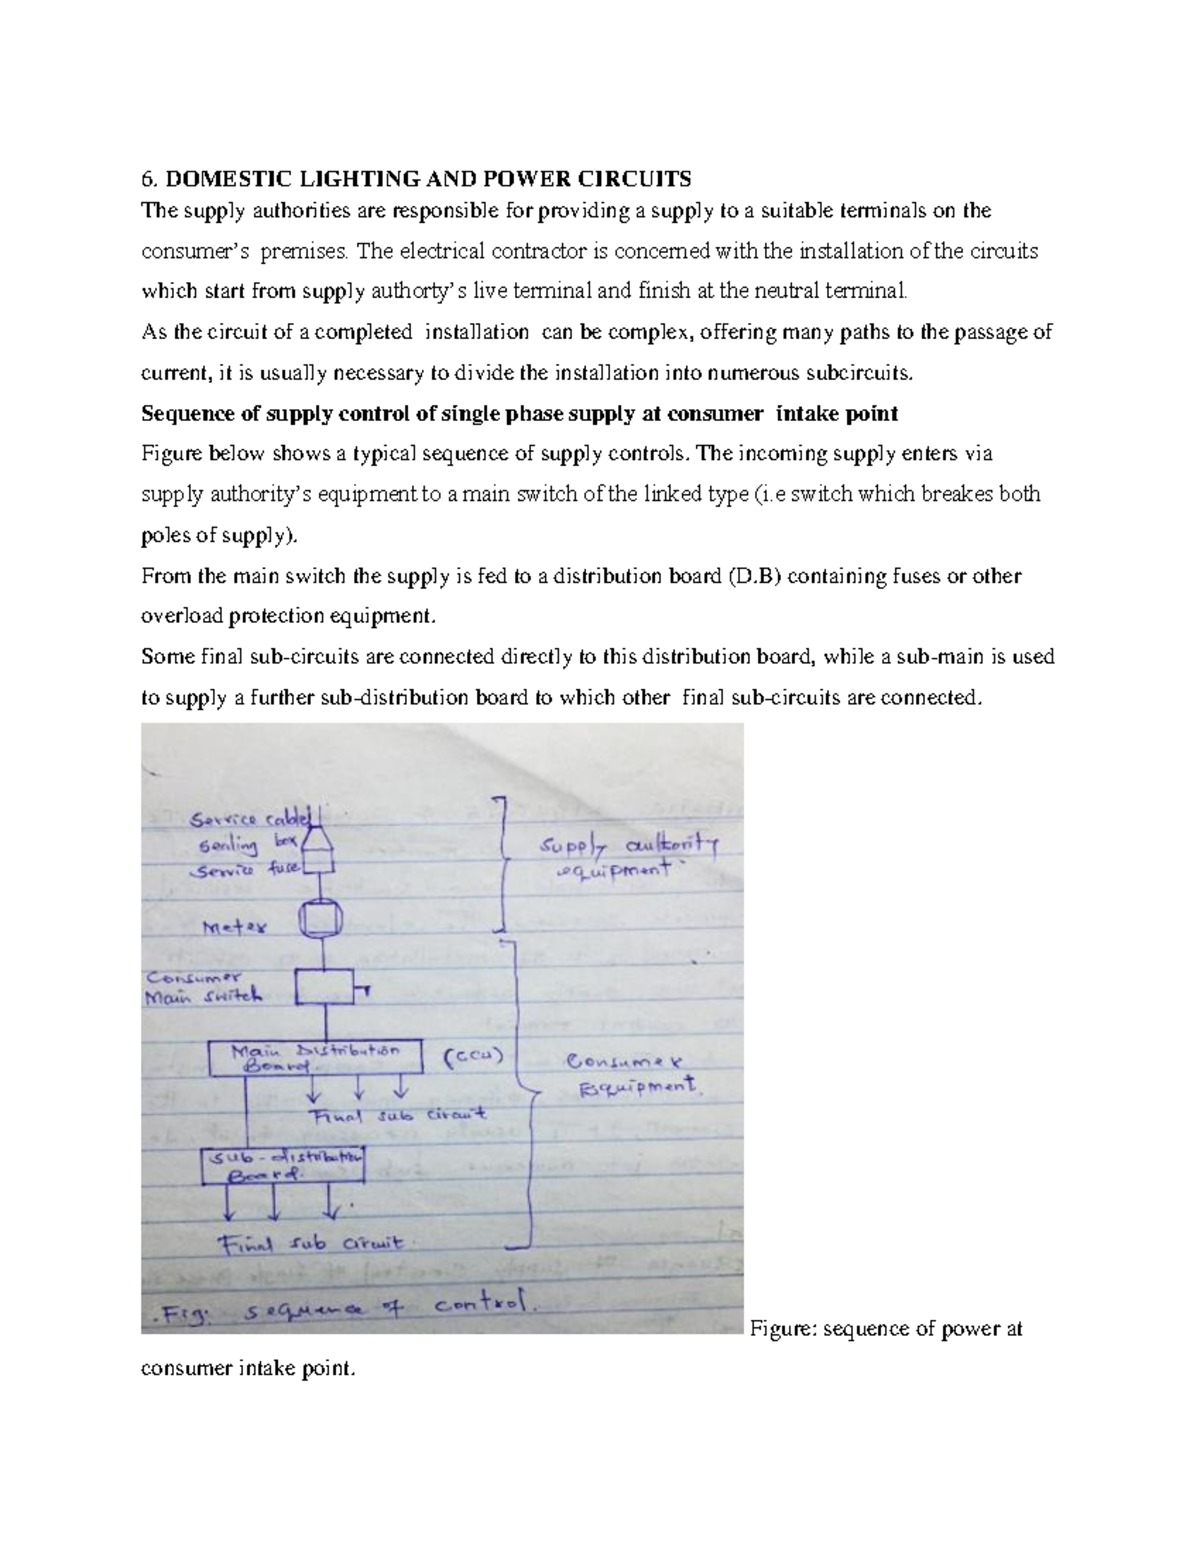 6. DOMESTIC LIGHTING AND POWER CIRCUITS
The supply authorities are responsible for providing a supply to a suitable terminals on the
consumer’s premises. The electrical contractor is concerned with the installation of the circuits
which start from supply authorty’s live terminal and finish at the neutral terminal.
As the circuit of a completed installation can be complex, offering many paths to the passage of
current, it is usually necessary to divide the installation into numerous subcircuits.
Sequence of supply control of single phase supply at consumer intake point
Figure below shows a typical sequence of supply controls. The incoming supply enters via
supply authority’s equipment to a main switch of the linked type (i.e switch which breakes both
poles of supply).
From the main switch the supply is fed to a distribution board (D.B) containing fuses or other
overload protection equipment.
Some final sub-circuits are connected directly to this distribution board, while a sub-main is used
to supply a further sub-distribution board to which other final sub-circuits are connected.
Service cable
Sealing box
Service fuse
Supply authority
equipment
Meter
Consumer
Main switch
Main Distribution
Board.
(CCU)
Consumer
Equipment.
Final sub circuit
Sub-distribution
Board.
Final sub circuit.
Fig: sequence of control.
Figure: sequence of power at
consumer intake point.